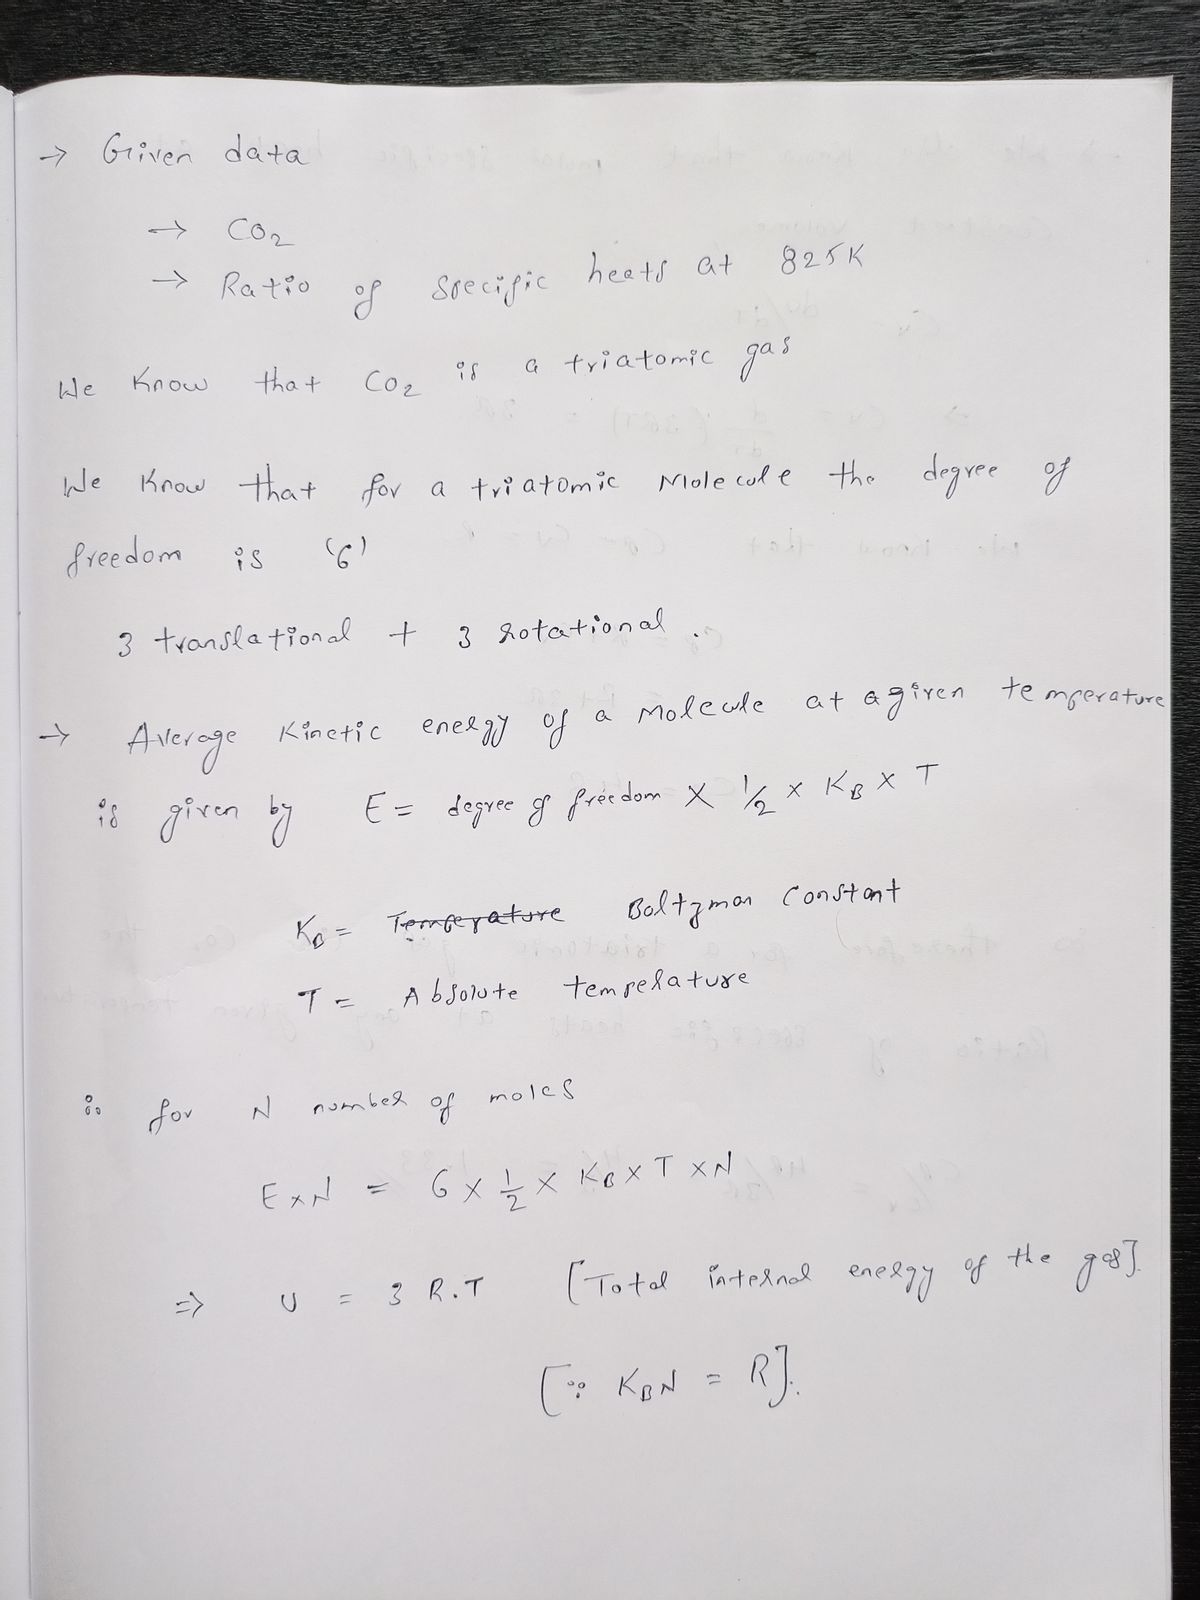 → Given data
→ CO2
→ Ratio of specific heats at 825K
We know that CO2 is a triatomic gas
We know that for a triatomic Molecule the degree of
freedom is '6'
3 translational + 3 rotational.
→ Average Kinetic energy of a Molecule at a given temperature
is given by E = degree of freedom × 1/2 × KB × T
KB = Temperature Boltzman Constant
T = Absolute temperature
∴ for N number of moles
E × N = 6 × 1/2 × KB × T × N
⇒ U = 3 R.T [Total internal energy of the gas].
[∵ KBN = R].